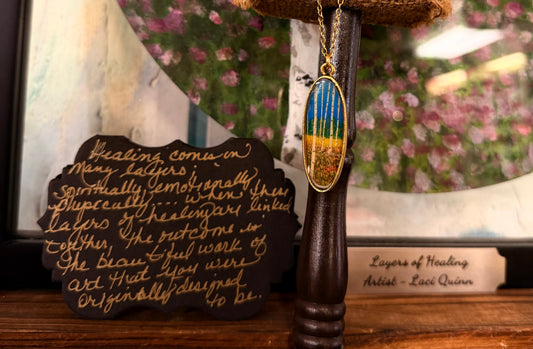 Healing comes in
many layers;
spiritually, emotionally
physically... when these
layers of healing are linked
together, the outcome is
the beautiful work of
art that you were
originally designed
to be.
Layers of Healing
Artist - Laci Quinn